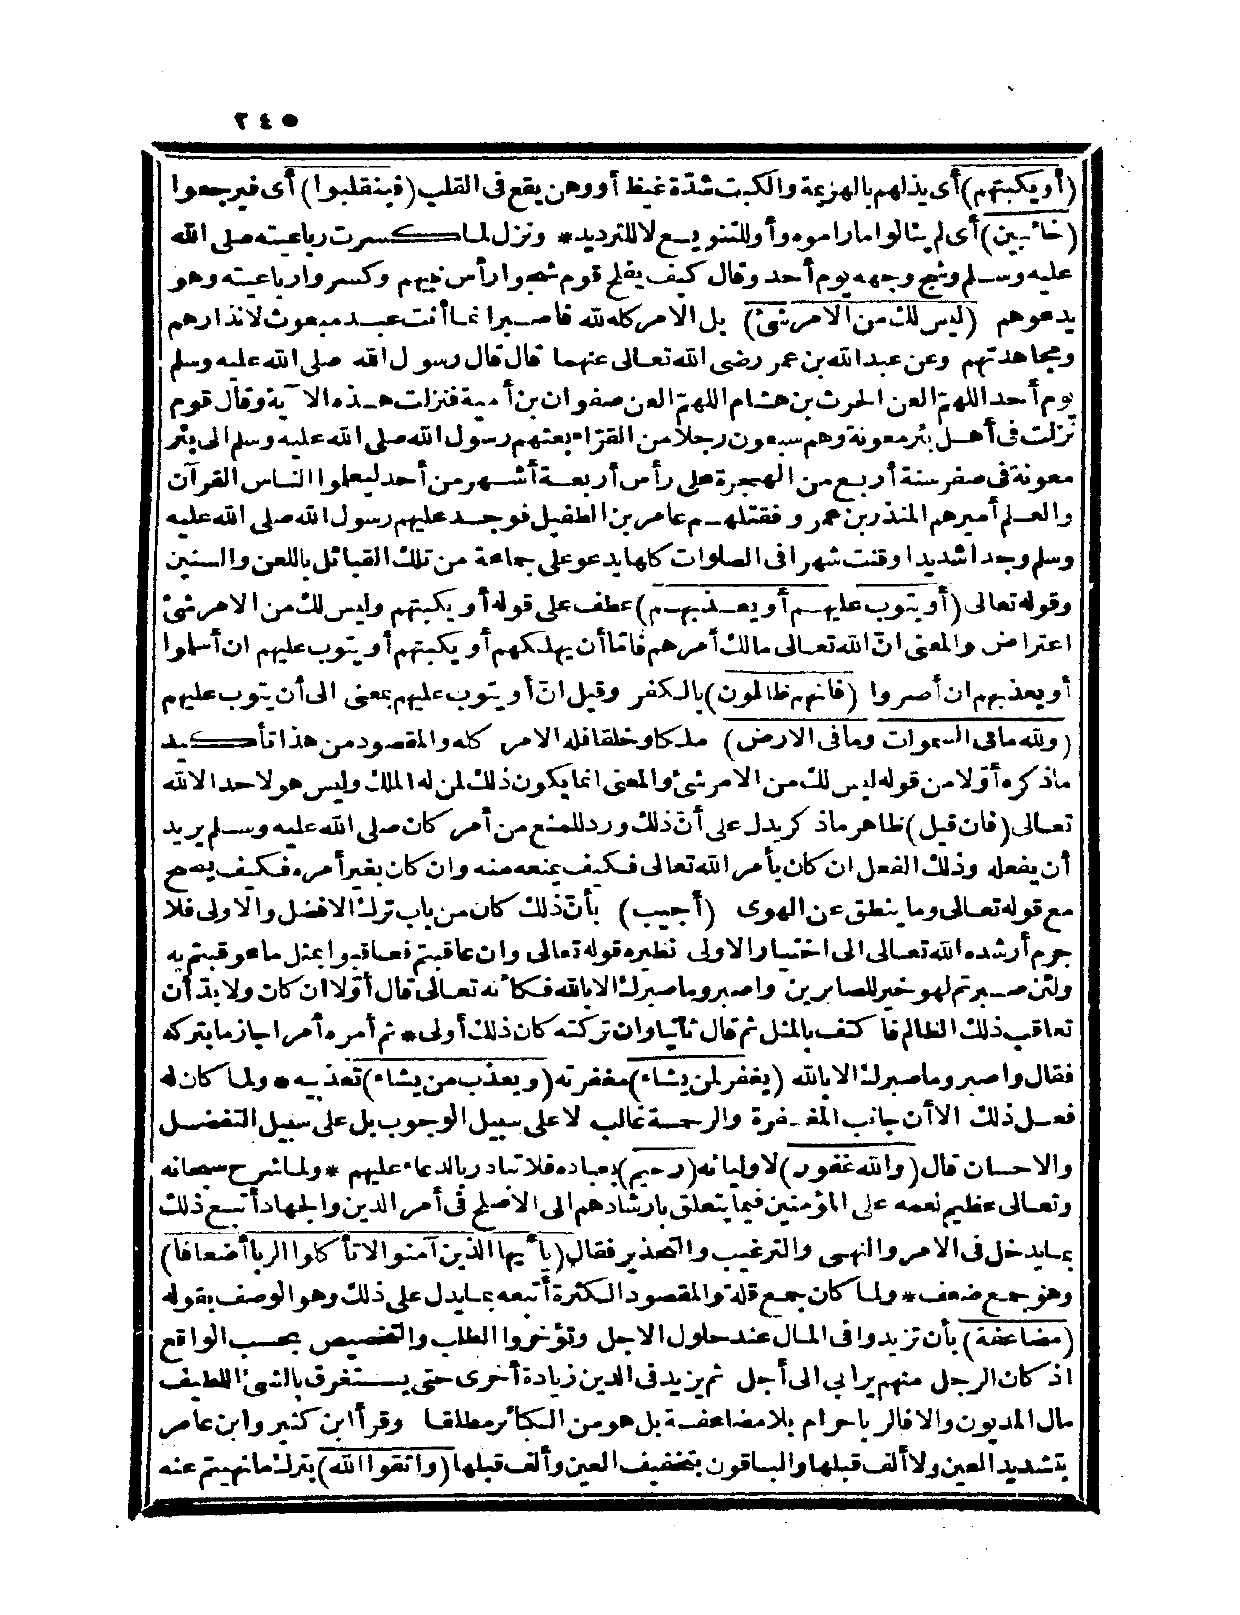 ٢٤٥
(أو يكبتهم) أى يذلهم بالهزيمة والكبت شدّة غيظ أو وهن يقع فى القلب (فينقلبوا) أى فيرجعوا
(خائبين) أى لم ينالوا ما راموه وأو للتنويع لا للترديد * ونزل لما كسرت رباعيته صلى الله
عليه وسلم وشج وجهه يوم أحد وقال كيف يفلح قوم شجوا رأس نبيهم وكسروا رباعيته وهو
يدعوهم (ليس لك من الامر شئ) بل الامر كله لله فاصبر انما أنت عبد مبعوث لانذارهم
ومجاهدتهم وعن عبد الله بن عمر رضى الله تعالى عنهما قال قال رسول الله صلى الله عليه وسلم
يوم أحد اللهمّ العن الحرث بن هشام اللهمّ العن صفوان بن أمية فنزلت هذه الآية وقال قوم
نزلت فى أهل بئر معونة وهم سبعون رجلا من القرّاء بعثهم رسول الله صلى الله عليه وسلم الى بئر
معونة فى صفر سنة أربع من الهجرة على رأس أربعة أشهر من أحد ليعلموا الناس القرآن
والعلم أميرهم المنذر بن عمرو فقتلهم عامر بن الطفيل فوجد عليهم رسول الله صلى الله عليه
وسلم وجدا شديدا وقنت شهرا فى الصلوات كلها يدعو على جماعة من تلك القبائل باللعن والسنين
وقوله تعالى (أو يتوب عليهم أو يعذبهم) عطف على قوله أو يكبتهم وليس لك من الامر شئ
اعتراض والمعنى انّ الله تعالى مالك أمرهم فامّا أن يهلكهم أو يكبتهم أو يتوب عليهم ان أسلموا
أو يعذبهم ان أصروا (فانهم ظالمون) بالكفر وقيل انّ أو يتوب عليهم بمعنى الى أن يتوب عليهم
(ولله ما فى السموات وما فى الارض) ملكا وخلقا فله الامر كله والمقصود من هذا تأكيد
ما ذكره أوّلا من قوله ليس لك من الامر شئ والمعنى انما يكون ذلك لمن له الملك وليس هو لاحد الا لله
تعالى (فان قيل) ظاهر ما ذكر يدل على أنّ ذلك ورد للمنع من أمر كان صلى الله عليه وسلم يريد
أن يفعله وذلك الفعل ان كان بأمر الله تعالى فكيف يمنعه منه وان كان بغير أمره فكيف يصح
مع قوله تعالى وما ينطق عن الهوى (أجيب) بأنّ ذلك كان من باب ترك الافضل والاولى فلا
جرم أرشده الله تعالى الى اختيار الاولى نظيره قوله تعالى وان عاقبتم فعاقبوا بمثل ما عوقبتم به
ولئن صبرتم لهو خير للصابرين واصبر وما صبرك الا بالله فكأنه تعالى قال أوّلا ان كان ولا بدّ أن
تعاقب ذلك الظالم فاكتف بالمثل ثم قال ثانيا وان تركته كان ذلك أولى * ثم أمره أمرا جازما بتركه
فقال واصبر وما صبرك الا بالله (يغفر لمن يشاء) مغفرته (ويعذب من يشاء) تعذيبه * ولما كان له
فعل ذلك الا أن جانب المغفرة والرحمة غالب لا على سبيل الوجوب بل على سبيل التفضل
والاحسان قال (والله غفور) لاوليائه (رحيم) بعباده فلا تبادر بالدعاء عليهم * ولما شرح سبحانه
وتعالى عظيم نعمه على المؤمنين فيما يتعلق بارشادهم الى الاصلح فى أمر الدين والجهاد أتبع ذلك
بما يدخل فى الامر والنهى والترغيب والتحذير فقال (يا أيها الذين آمنوا لا تأكلوا الربا أضعافا)
وهو جمع ضعف * ولما كان جمع قلة والمقصود الكثرة أتبعه بما يدل على ذلك وهو الوصف بقوله
(مضاعفة) بأن تزيدوا فى المال عند حلول الاجل وتؤخروا الطلب والتخصيص بحسب الواقع
اذ كان الرجل منهم يرابى الى أجل ثم يزيد فى الدين زيادة أخرى حتى يستغرق بالشئ اللطيف
مال المديون والا فالربا حرام بلا مضاعفة بل هو من الكبائر مطلقا وقرأ ابن كثير وابن عامر
بتشديد العين ولا ألف قبلها والباقون بتخفيف العين وألف قبلها (واتقوا الله) بترك ما نهيتم عنه